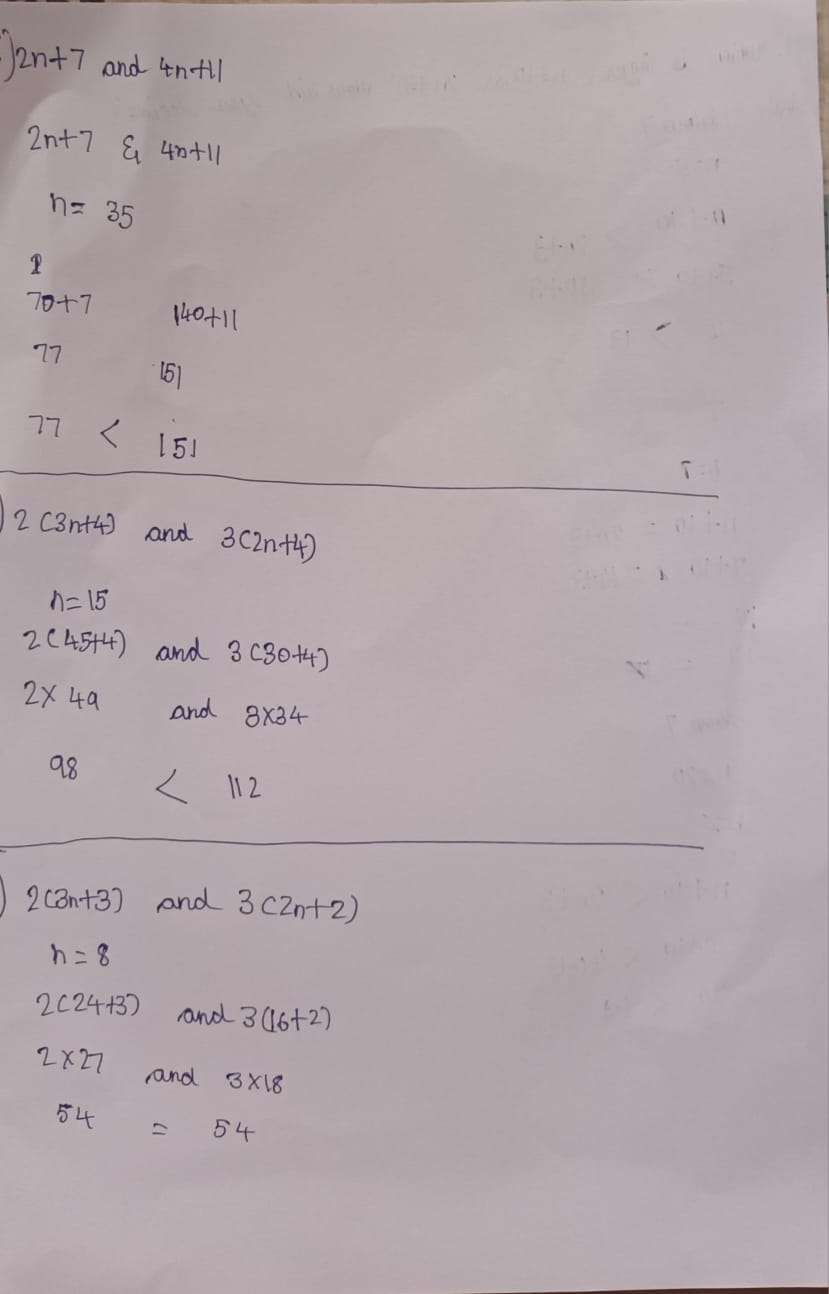 )2n+7 and 4n+11
2n+7 & 4n+11
n= 35
70+7 140+11
77 151
77 < 151
) 2(3n+4) and 3(2n+4)
n=15
2(45+4) and 3(30+4)
2×49 and 3×34
98 < 112
) 2(3n+3) and 3(2n+2)
n=8
2(24+3) and 3(16+2)
2×27 and 3×18
54 = 54